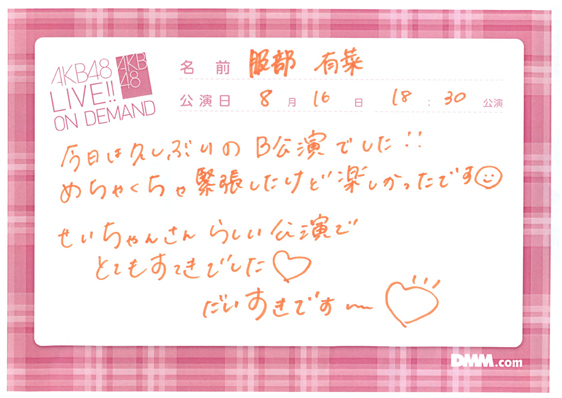 AKB48
LIVE!!
ON DEMAND
AKB
48
名 前 服部 有菜
公演日 8 月 16 日 18 : 30 公演
今日は久しぶりのB公演でした!!
めちゃくちゃ緊張したけど楽しかったです
せいちゃんさんらしい公演で
とてもすてきでした♡
だいすきです〜♡
DMM.com